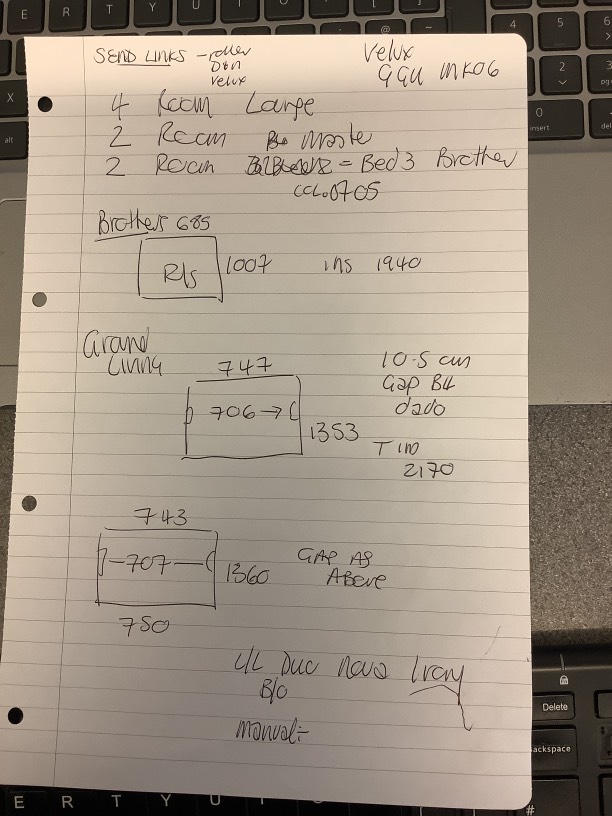 SEND LINKS - roller
D&N
Velux
Velux
GGU MK06
4 Room Large
2 Room Master
2 Room = Bed 3 Brother
0705
Brothers 685
R/s
1007 ins 1940
Grand
Living
747
706 →
1353
10.5 cm
Gap B4
dado
T ins
2170
743
-707-
1360
750
GAP AS
Above
U/L Duo Nova Ivory
B/O
Manual:-
E R T Y U
E R T Y U
alt
X
4 5 6
2 3
0
insert
Delete
Backspace
#